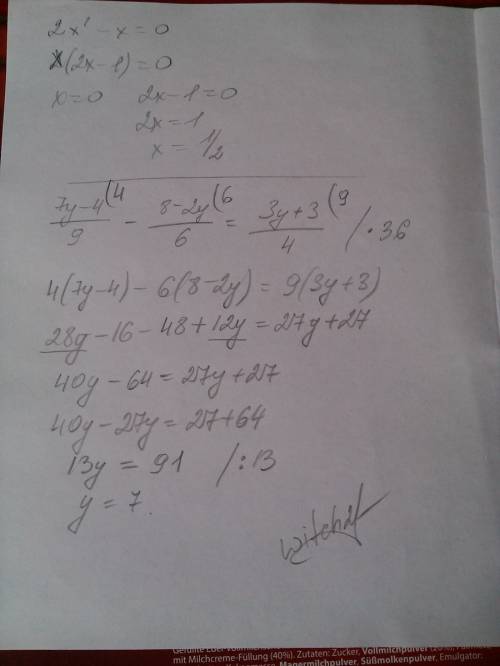 2x' - x = 0
x(2x-1) = 0
x=0 2x-1=0
2x=1
x = 1/2
7y-4(4 / 9 - 8-2y(6 / 6 = 3y+3(9 / 4 /·36
4(7y-4) - 6(8-2y) = 9(3y+3)
28y - 16 - 48 + 12y = 27y + 27
40y - 64 = 27y + 27
40y - 27y = 27 + 64
13y = 91 /:13
y = 7.
mit Milchcreme-Füllung (40%). Zutaten: Zucker, Vollmilchpulver
Magermilchpulver, Süßmolkenpulver, Emulgator: